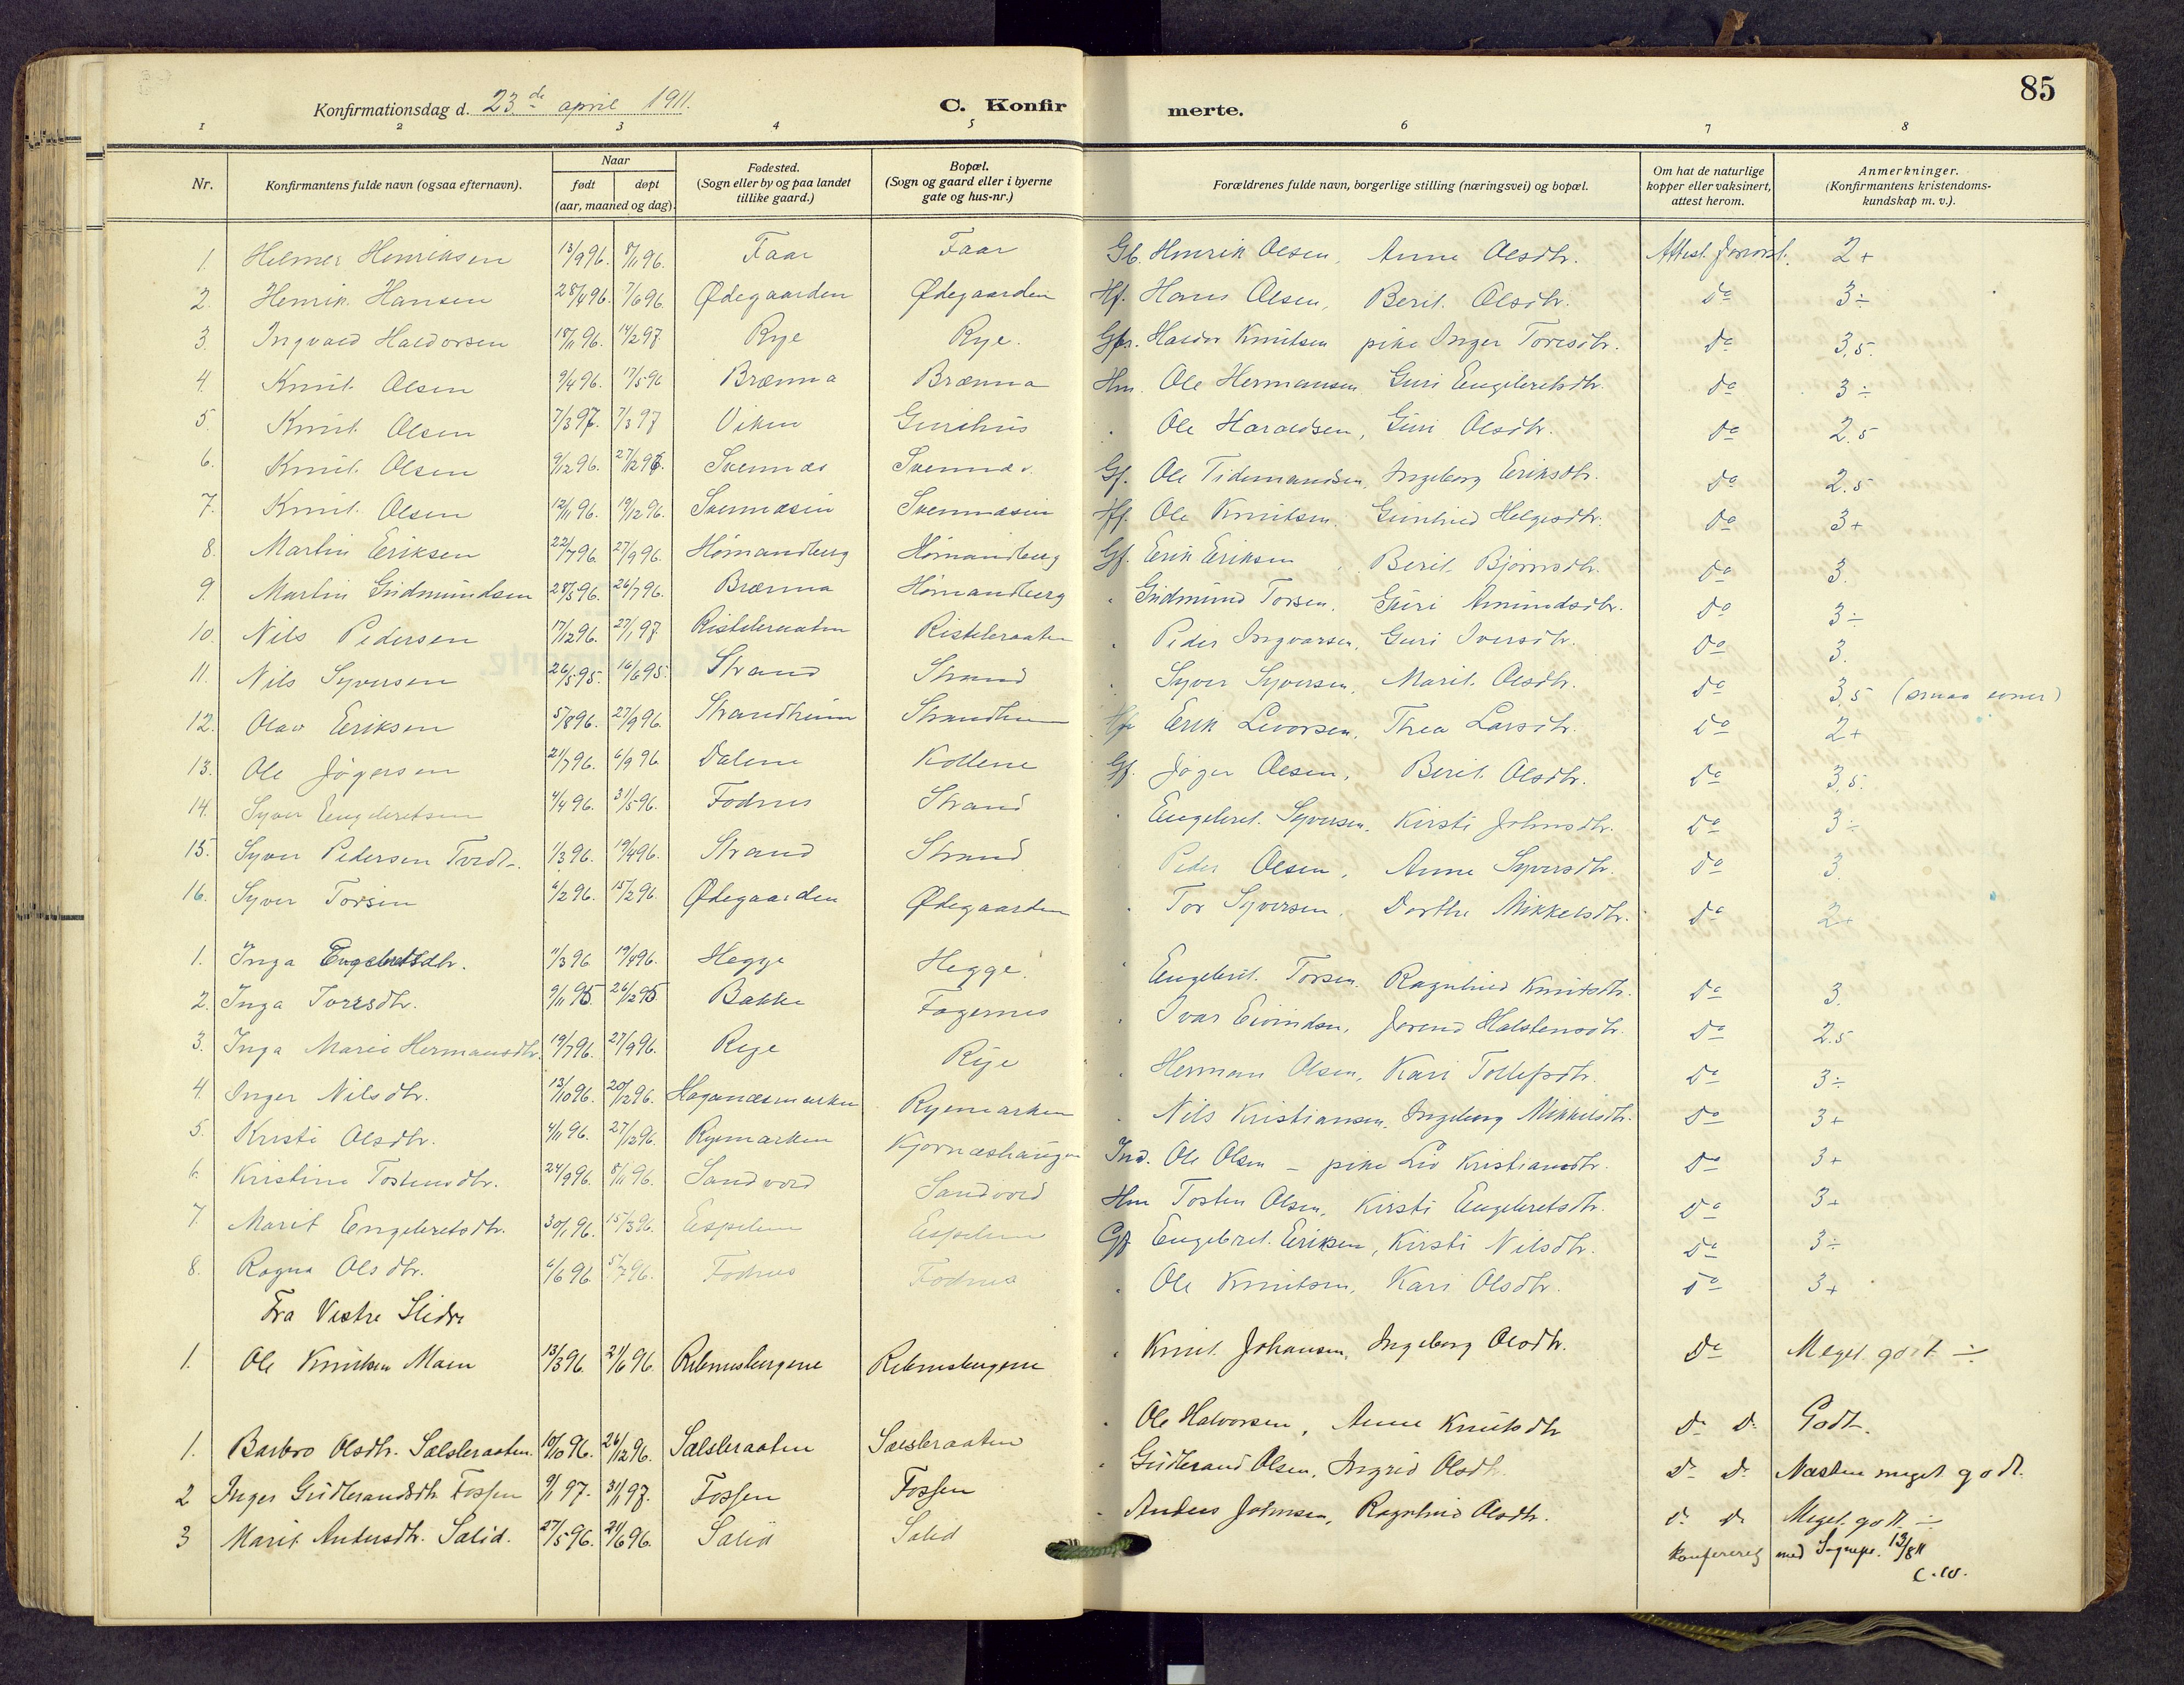 85
Konfirmationsdag d. 23de april 1911. C. Konfirmerte.
1 2 3 4 5 6 7 8
Nr. Konfirmantens fulde navn (ogsaa efternavn). Naar født døpt (aar, maaned og dag). Fødested. (Sogn eller by og paa landet tillike gaard.) Bopæl. (Sogn og gaard eller i byerne gate og hus-nr.) Forældrenes fulde navn, borgerlige stilling (næringsvei) og bopæl. Om hat de naturlige kopper eller vaksinert, attest herom. Anmerkninger. (Konfirmantens kristendoms-kundskap m. v.).
1. Helmer Henriksen 13/9 96. 8/11 96. Faar Faar Gb. Henrik Olsen, Anne Olsdtr. Attest forevist. 2+
2. Henrik Hansen 25/4 96. 7/6 96 Ødegaarden Ødegaarden Hf. Hans Olsen, Berit Olsdtr. Do 3÷
3. Ingvald Haldorsen 18/11 96. 14/2 97. Rye Rye. Gbr. Haldor Knutsen pike Inger Toresdtr. Do 3,5.
4. Knut Olsen 9/4 96. 17/5 96 Brænna Brænna Hm. Ole Hermansen Guri Engebretsdtr. Do 3÷
5. Knut Olsen 7/3 97. 7/3 97 Viken Gurihus Ole Haraldsen, Guri Olsdtr. Do 2.5
6. Knut Olsen 9/12 96. 27/12 96. Svennæs Svennæs Gf. Ole Tidemandsen, Ingeborg Eriksdtr. Do 2.5
7. Knut Olsen 12/11 96. 19/12 96. Svennæsin Svennæsin Hf. Ole Knutsen. Gunhild Helgesdtr. Do 3+
8. Martin Eriksen 22/7 96. 27/9 96. Hømandberg Hømandberg Gf. Erik Eriksen Berit Bjørnsdtr. Do 3.
9. Martin Gudmundsen 28/5 96. 26/7 96. Brænna Hømandberg Gudmund Torsen. Guri Amundsdtr. Do 3÷
10. Nils Pedersen 17/12 96. 27/1 97. Ristebraaten Ristebraaten Peder Ingvarsen. Guri Iversdtr. Do 3.
11. Nils Syversen 26/5 95. 16/6 95. Strand Strand Syver Syversen, Marit Olsdtr. Do 3,5 (smaa evner)
12. Olav Eriksen 5/8 96. 27/9 96. Strandheim Strandheim Erik Levorsen, Thea Larsdtr. Do 2+
13. Ole Jøgersen 21/7 96. 6/9 96 Dalene Kollene Gf. Jøger Olsen, Berit Olsdtr. Do 3,5.
14. Syver Engebretsen 4/4 96. 31/5 96. Fodnes Strand Engebret Syversen. Kirsti Johnsdtr. Do 3÷
15. Syver Pedersen Tvedt. 1/3 96. 19/4 96. Strand Strand Peder Olsen, Anne Syversdtr. Do 3.
16. Syver Torsen 6/2 96. 15/2 96. Ødegaarden Ødegaarden Tor Syversen. Dorthe Mikkelsdtr. Do 2+
1. Inga Engebretsdtr. 11/3 96 19/4 96. Hegge Hegge. Engebret Torsen. Ragnhild Knutsdtr. Do 3.
2. Inga Ivarsdtr. 9/11 95 26/12 95 Bakke Fagernes Ivar Eivindsen, Jørend Halstensdtr. Do 2.5
3. Inga Marie Hermansdtr. 19/7 96. 27/9 96. Rye Rye Herman Olsen, Kari Tollefsdtr. Do 3÷
4. Inger Nilsdtr. 13/10 96. 20/12 96. Haganæsmarken Ryemarken Nils Kristiansen, Ingeborg Mikkelsdtr. Do 3+
5. Kristi Olsdtr. 4/11 96. 27/12 96. Ryemarken Kjørnæshaugen Ind. Ole Olsen – pike Liv Kristiansdtr. Do 3+
6. Kristine Tostensdtr. 24/9 96. 8/11 96. Sandvord Sandvord Hm Tosten Olsen, Kirsti Engebretsdtr. Do 3+
7. Marit Engebretsdtr. 30/1 96. 15/3 96. Espelien Espelien Gf Engebret Eriksen, Kirsti Nilsdtr. Do 3÷
8. Ragna Olsdtr. 6/6 96 5/7 96. Fodnes Fodnes Ole Knutsen, Kari Olsdtr. Do 3+
Fra Vestre Slidre
1. Ole Knutsen Moen 13/3 96. 21/6 96. Rebneskergene Rebneskergene Knut Johansen, Ingeborg Olsdtr. Do Meget godt ÷
1. Barbro Olsdtr. Sælsbraaten. 10/10 96. 26/12 96. Sælsbraaten Sælsbraaten Ole Halvorsen, Anne Knutsdtr D. D. Godt.
2 Inger Gudbrandsdtr. Fossen 9/1 97. 31/1 97. Fossen Fossen Gudbrand Olsen, Ingrid Olsdtr. D. D. Næsten meget godt.
3 Marit Andersdtr. Salid. 27/5 96. 21/6 96. Salid Salid Anders Johnsen, Ragnhild Olsdtr. D. D. Meget godt ÷
konfereret med Sognepr. 13/8 11
C.W.